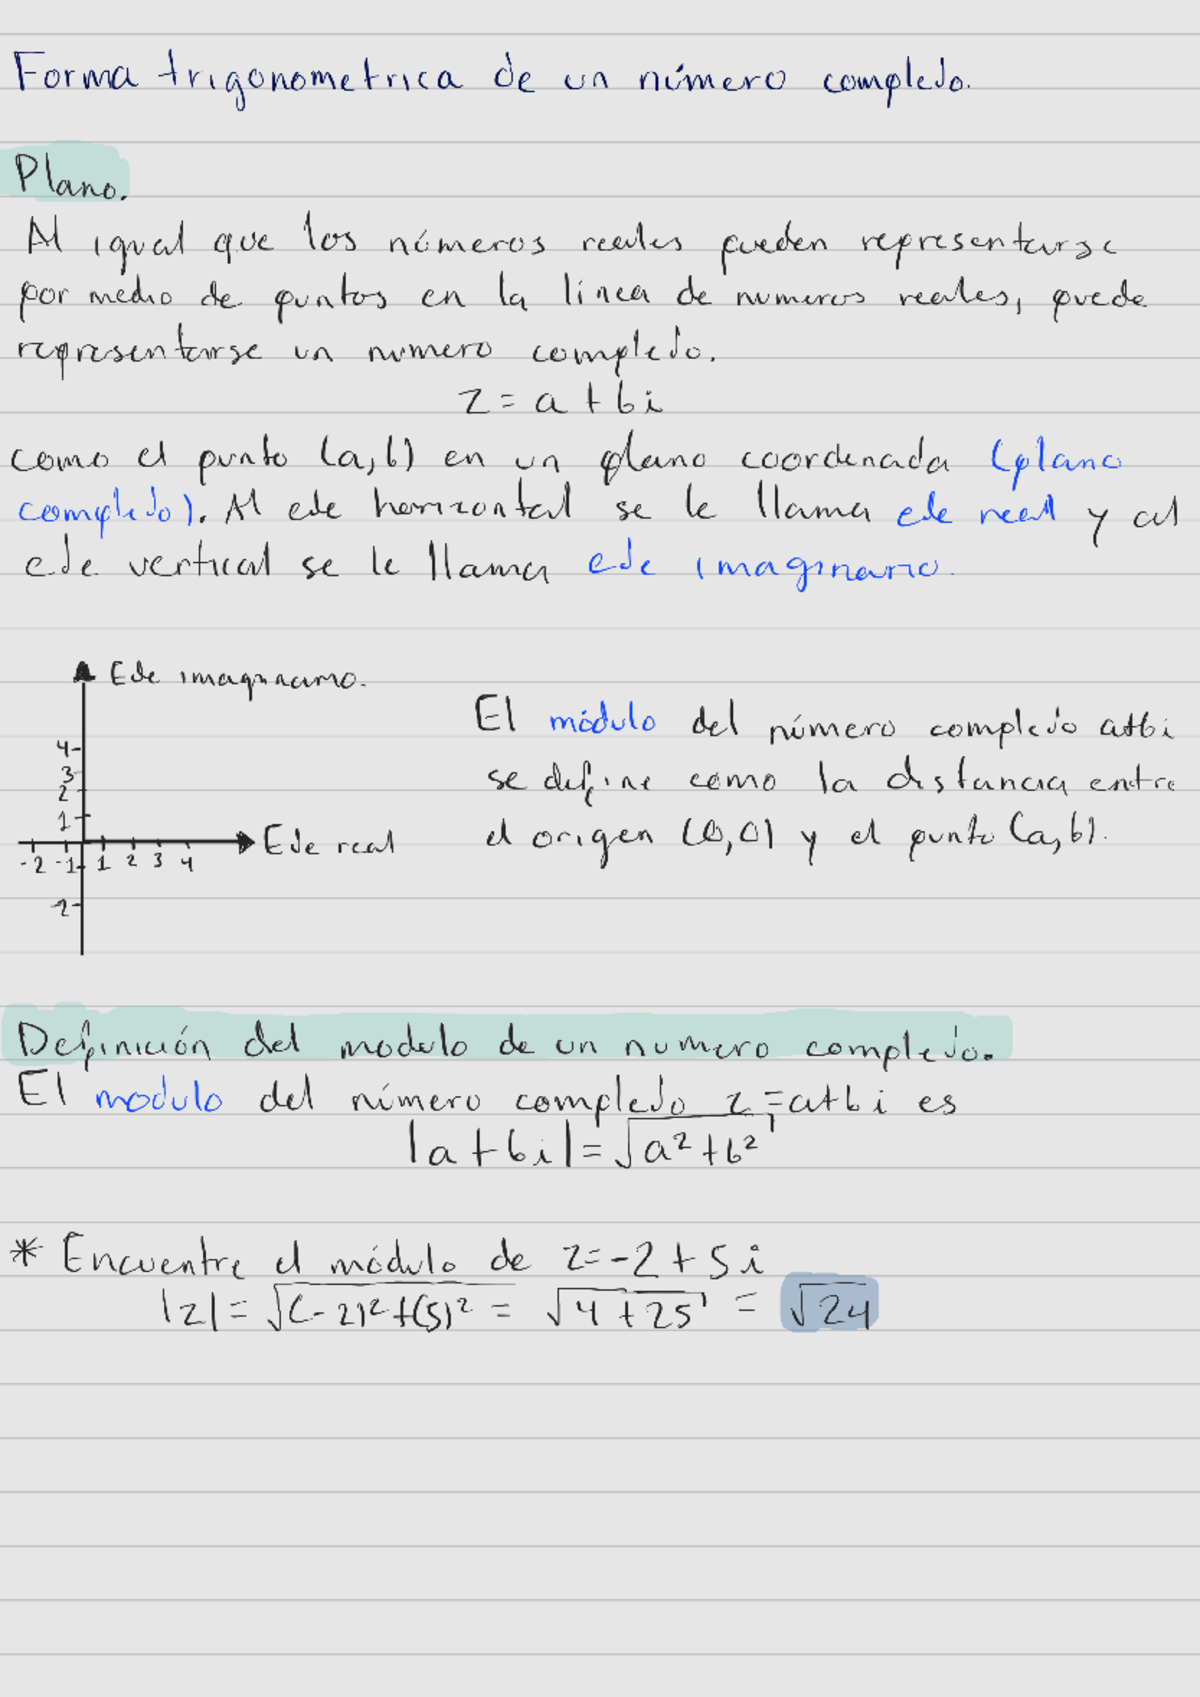 Forma trigonometrica de un número complejo.
Plano.
Al igual que los números reales pueden representarse
por medio de puntos en la línea de numeros reales, puede
representarse un numero complejo.
z = a + bi
como el punto (a,b) en un plano coordenada (plano
complejo). Al eje horizontal se le llama eje real y al
eje vertical se le llama eje imaginario.
Eje imaginario.
4
3
2
1
-2 -1 1 2 3 4 Eje real
-2
El módulo del número complejo a+bi
se define como la distancia entre
el origen (0,0) y el punto (a,b).
Definición del modulo de un numero complejo.
El modulo del número complejo z = a+bi es
|a+bi| = √a²+b²
* Encuentre el módulo de z=-2+5i
|z| = √(-2)²+(5)² = √4+25 = √24